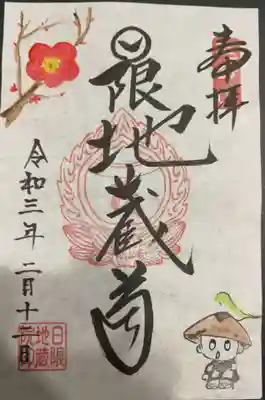 奉拝
日限地蔵尊
令和三年二月十二日
日限
地蔵
院印